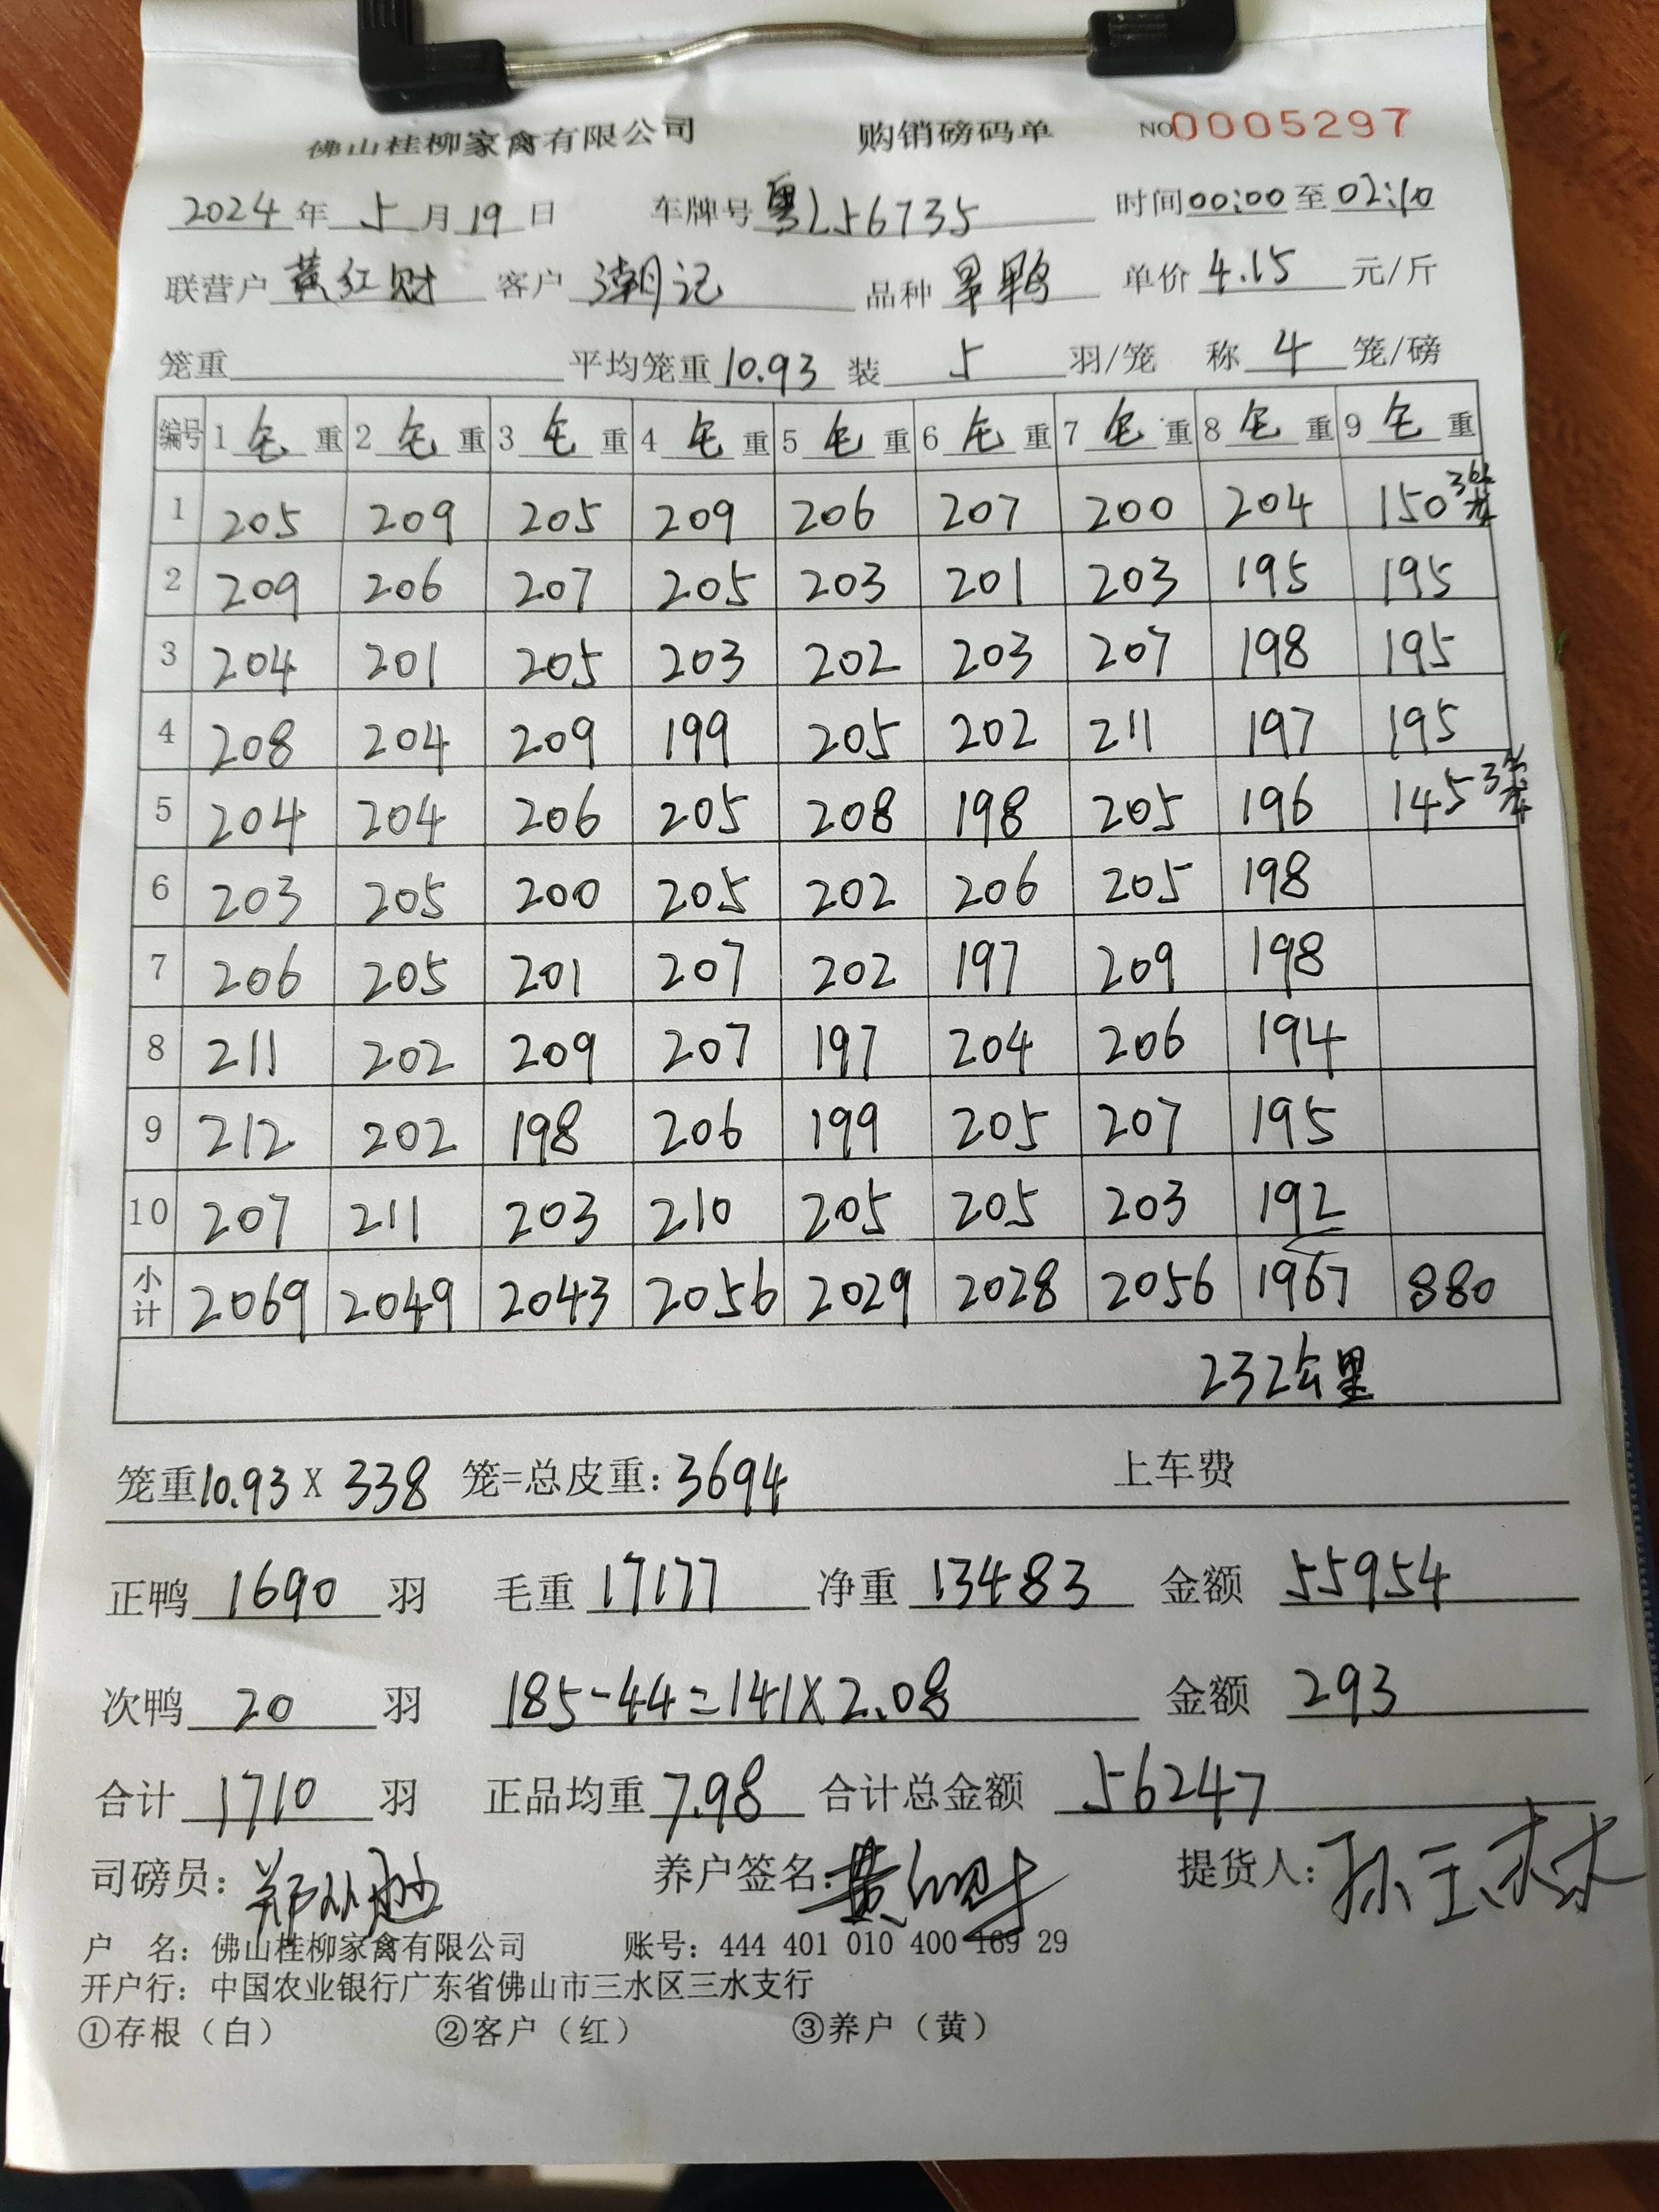 佛山桂柳家禽有限公司 购销磅码单 NO 0005297
2024 年 5 月 19 日 车牌号 粤L56735 时间 00:00 至 02:10
联营户 黄红财 客户 潮记 品种 旱鸭 单价 4.15 元/斤
笼重 平均笼重 10.93 装 5 羽/笼 称 4 笼/磅
编号 1 毛 重 2 毛 重 3 毛 重 4 毛 重 5 毛 重 6 毛 重 7 毛 重 8 毛 重 9 毛 重
1 205 209 205 209 206 207 200 204 150 3笼
2 209 206 207 205 203 201 203 195 195
3 204 201 205 203 202 203 207 198 195
4 208 204 209 199 205 202 211 197 195
5 204 204 206 205 208 198 205 196 145 3笼
6 203 205 200 205 202 206 205 198
7 206 205 201 207 202 197 209 198
8 211 202 209 207 197 204 206 194
9 212 202 198 206 199 205 207 195
10 207 211 203 210 205 205 203 192
小计 2069 2049 2043 2056 2029 2028 2056 1967 880
232公里
笼重 10.93 X 338 笼=总皮重: 3694 上车费
正鸭 1690 羽 毛重 17177 净重 13483 金额 55954
次鸭 20 羽 185-44=141X2.08 金额 293
合计 1710 羽 正品均重 7.98 合计总金额 56247
司磅员: 养户签名: 提货人:
户 名: 佛山桂柳家禽有限公司 账号: 444 401 010 400 169 29
开户行: 中国农业银行广东省佛山市三水区三水支行
①存根（白） ②客户（红） ③养户（黄）